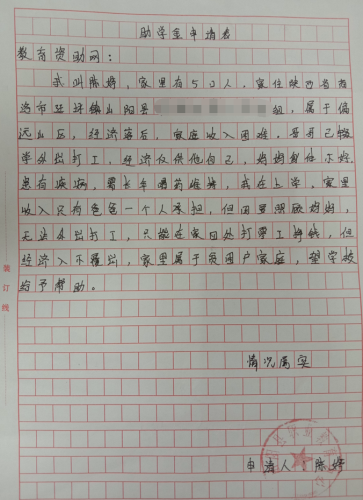 助学金申请表
教育资助网：
我叫陈婷，家里有5口人，家住陕西省商
洛市 镇山阳县 组，属于偏
远山区，经济落后，家庭收入困难，哥哥已经
毕业出打工，经济仅供他自己，妈妈身体不好，
患有疾病，需长年喝药维持，我在上学，家里
收入只有爸爸一个人承担，但因要照顾妈妈，
无法外出打工，只能在家四处打零工挣钱，但
经济入不覆出，家里属于贫困户家庭，望学校
给予帮助。
情况属实
申请人：陈婷
装订线